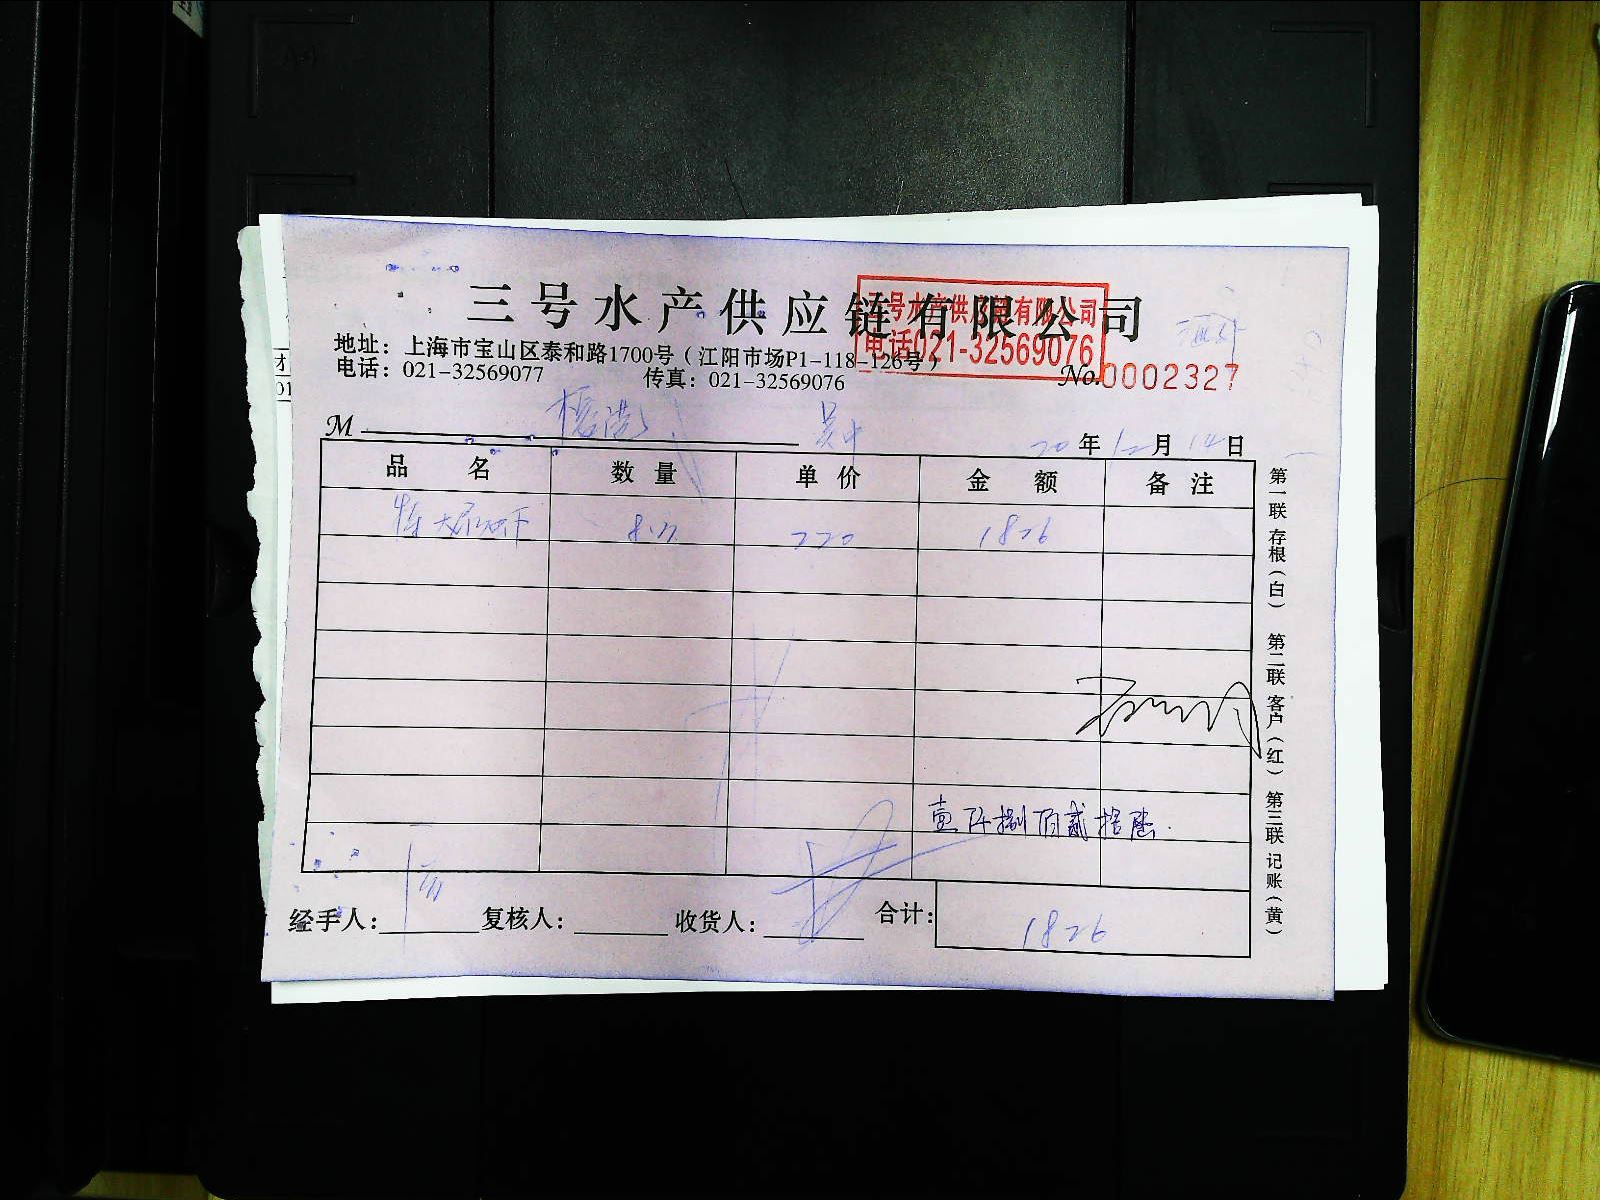 三号水产供应链有限公司
三号水产供应链有限公司
电话021-32569076
地址：上海市宝山区泰和路1700号（江阳市场P1-118-126号）
电话：021-32569077 传真：021-32569076
No.0002327
M
20年12月14日
品名 数量 单价 金额 备注
220 1826
壹仟捌佰贰拾陆
经手人： 复核人： 收货人： 合计：1826
第一联 存根（白） 第二联 客户（红） 第三联 记账（黄）